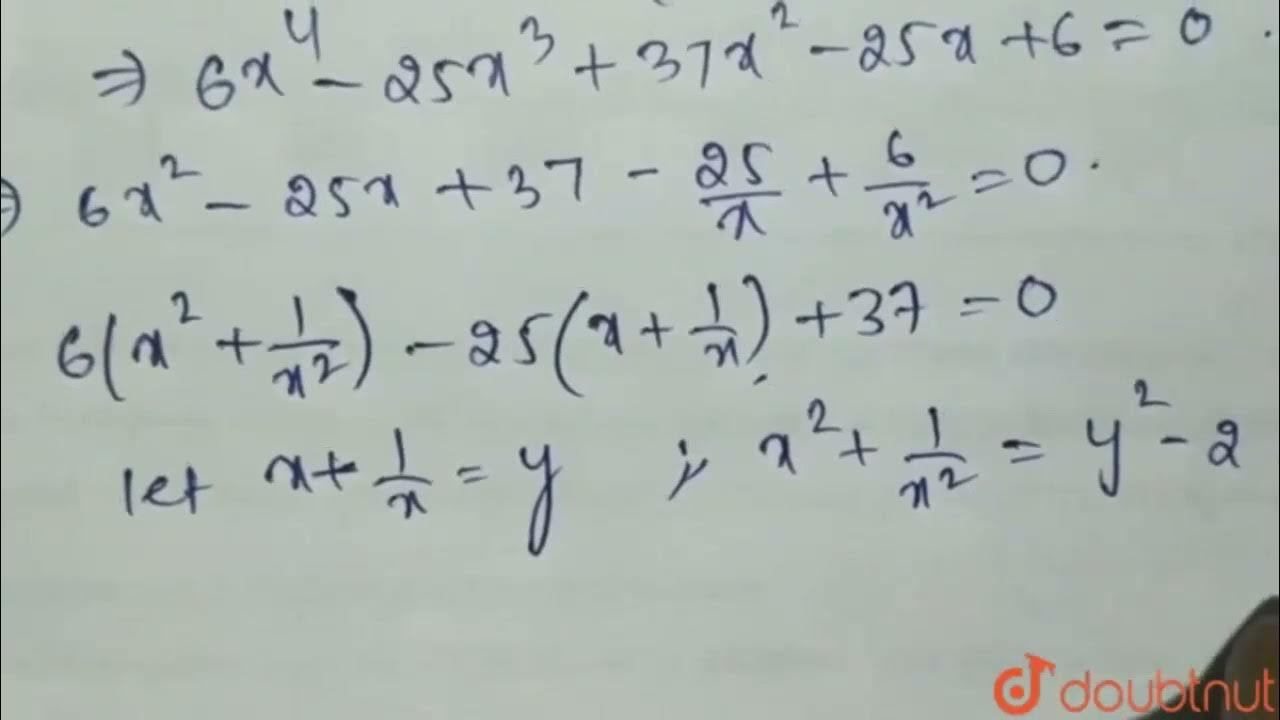 ⇒ 6x⁴ - 25x³ + 37x² - 25x + 6 = 0.
⇒ 6x² - 25x + 37 - 25/x + 6/x² = 0.
6(x² + 1/x²) - 25(x + 1/x) + 37 = 0
let x + 1/x = y ; x² + 1/x² = y² - 2
doubtnut